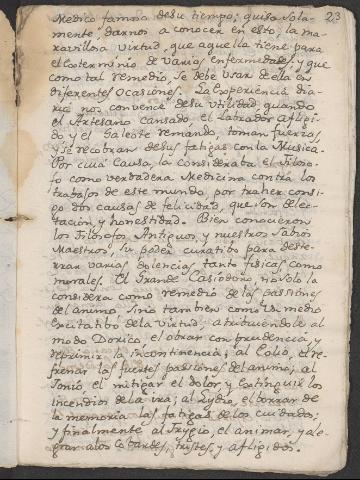 23
Medico famoso desu tiempo; quiso sola-
mente darnos a conocer en esto, la ma-
ravillosa virtud, que aquella tiene para
el Exterminio de varias enfermedades, y que
como tal remedio, se debe usar de ella en
diferentes ocasiónes. La Experiencia dia-
ria nos convence desu utilidad, quando
el Artesano cansado, el Labrador afligi-
do y el Galeote remando, toman fuerzas,
y se recobran desus fatigas con la Musica.
Por cuia Causa, la consideraba el Filoso-
fo como verdadera Medicina contra los
trabajos de este mundo, por traher consi-
go dos causas de felicidad, que son delec-
tación, y honestidad. Bien conocieron
los Filosofos Antiguos, y nuestros Sabios
Maestros, su poder curativo para deste-
rrar varias dolencias tanto fisicas como
morales. El Grande Casiodoro, no solo la
considera como remedio de las passiónes
del animo, Sino tambien como un medio
excitatibo dela virtud, atribuiendole al
modo Dorico, el obrar con prudencia, y
reprimir la incontinencia; al Eolio, el re-
frenar las fuertes passiones del animo; al
Jonio el mitigar el dolor, y Extinguir los
incendios dela ira; al Lydio, el borrar de
la memoria las fatigas de los cuidados;
y finalmente al Frygio, el animar, y ale-
grar alos Cobardes, tristes, y afligidos.